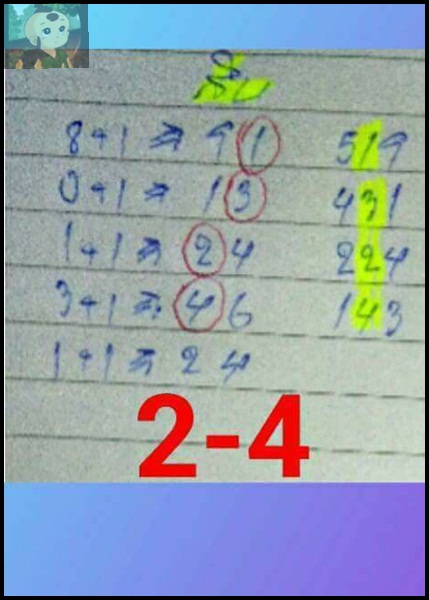 8+1 ⇒ 9 1 519
0+1 ⇒ 1 3 431
1+1 ⇒ 2 4 224
3+1 ⇒ 4 6 143
1+1 ⇒ 2 4
2-4